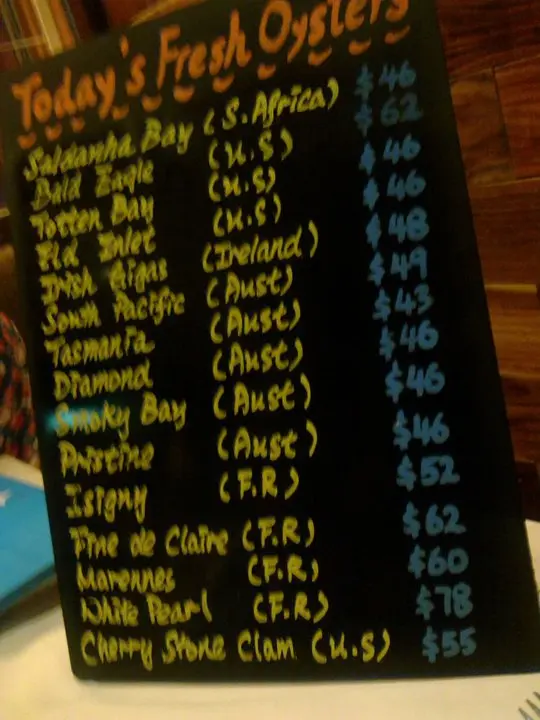 Today's Fresh Oysters
Saldanha Bay (S.Africa) $46
Bald Eagle (U.S) $62
Totten Bay (U.S) $46
Eld Inlet (U.S) $46
Irish Gigas (Ireland) $48
South Pacific (Aust) $49
Tasmania (Aust) $43
Diamond (Aust) $46
Smoky Bay (Aust) $46
Pristine (Aust) $46
Isigny (F.R) $52
Fine de Claire (F.R) $62
Marennes (F.R) $60
White Pearl (F.R) $78
Cherry Stone Clam (U.S) $55